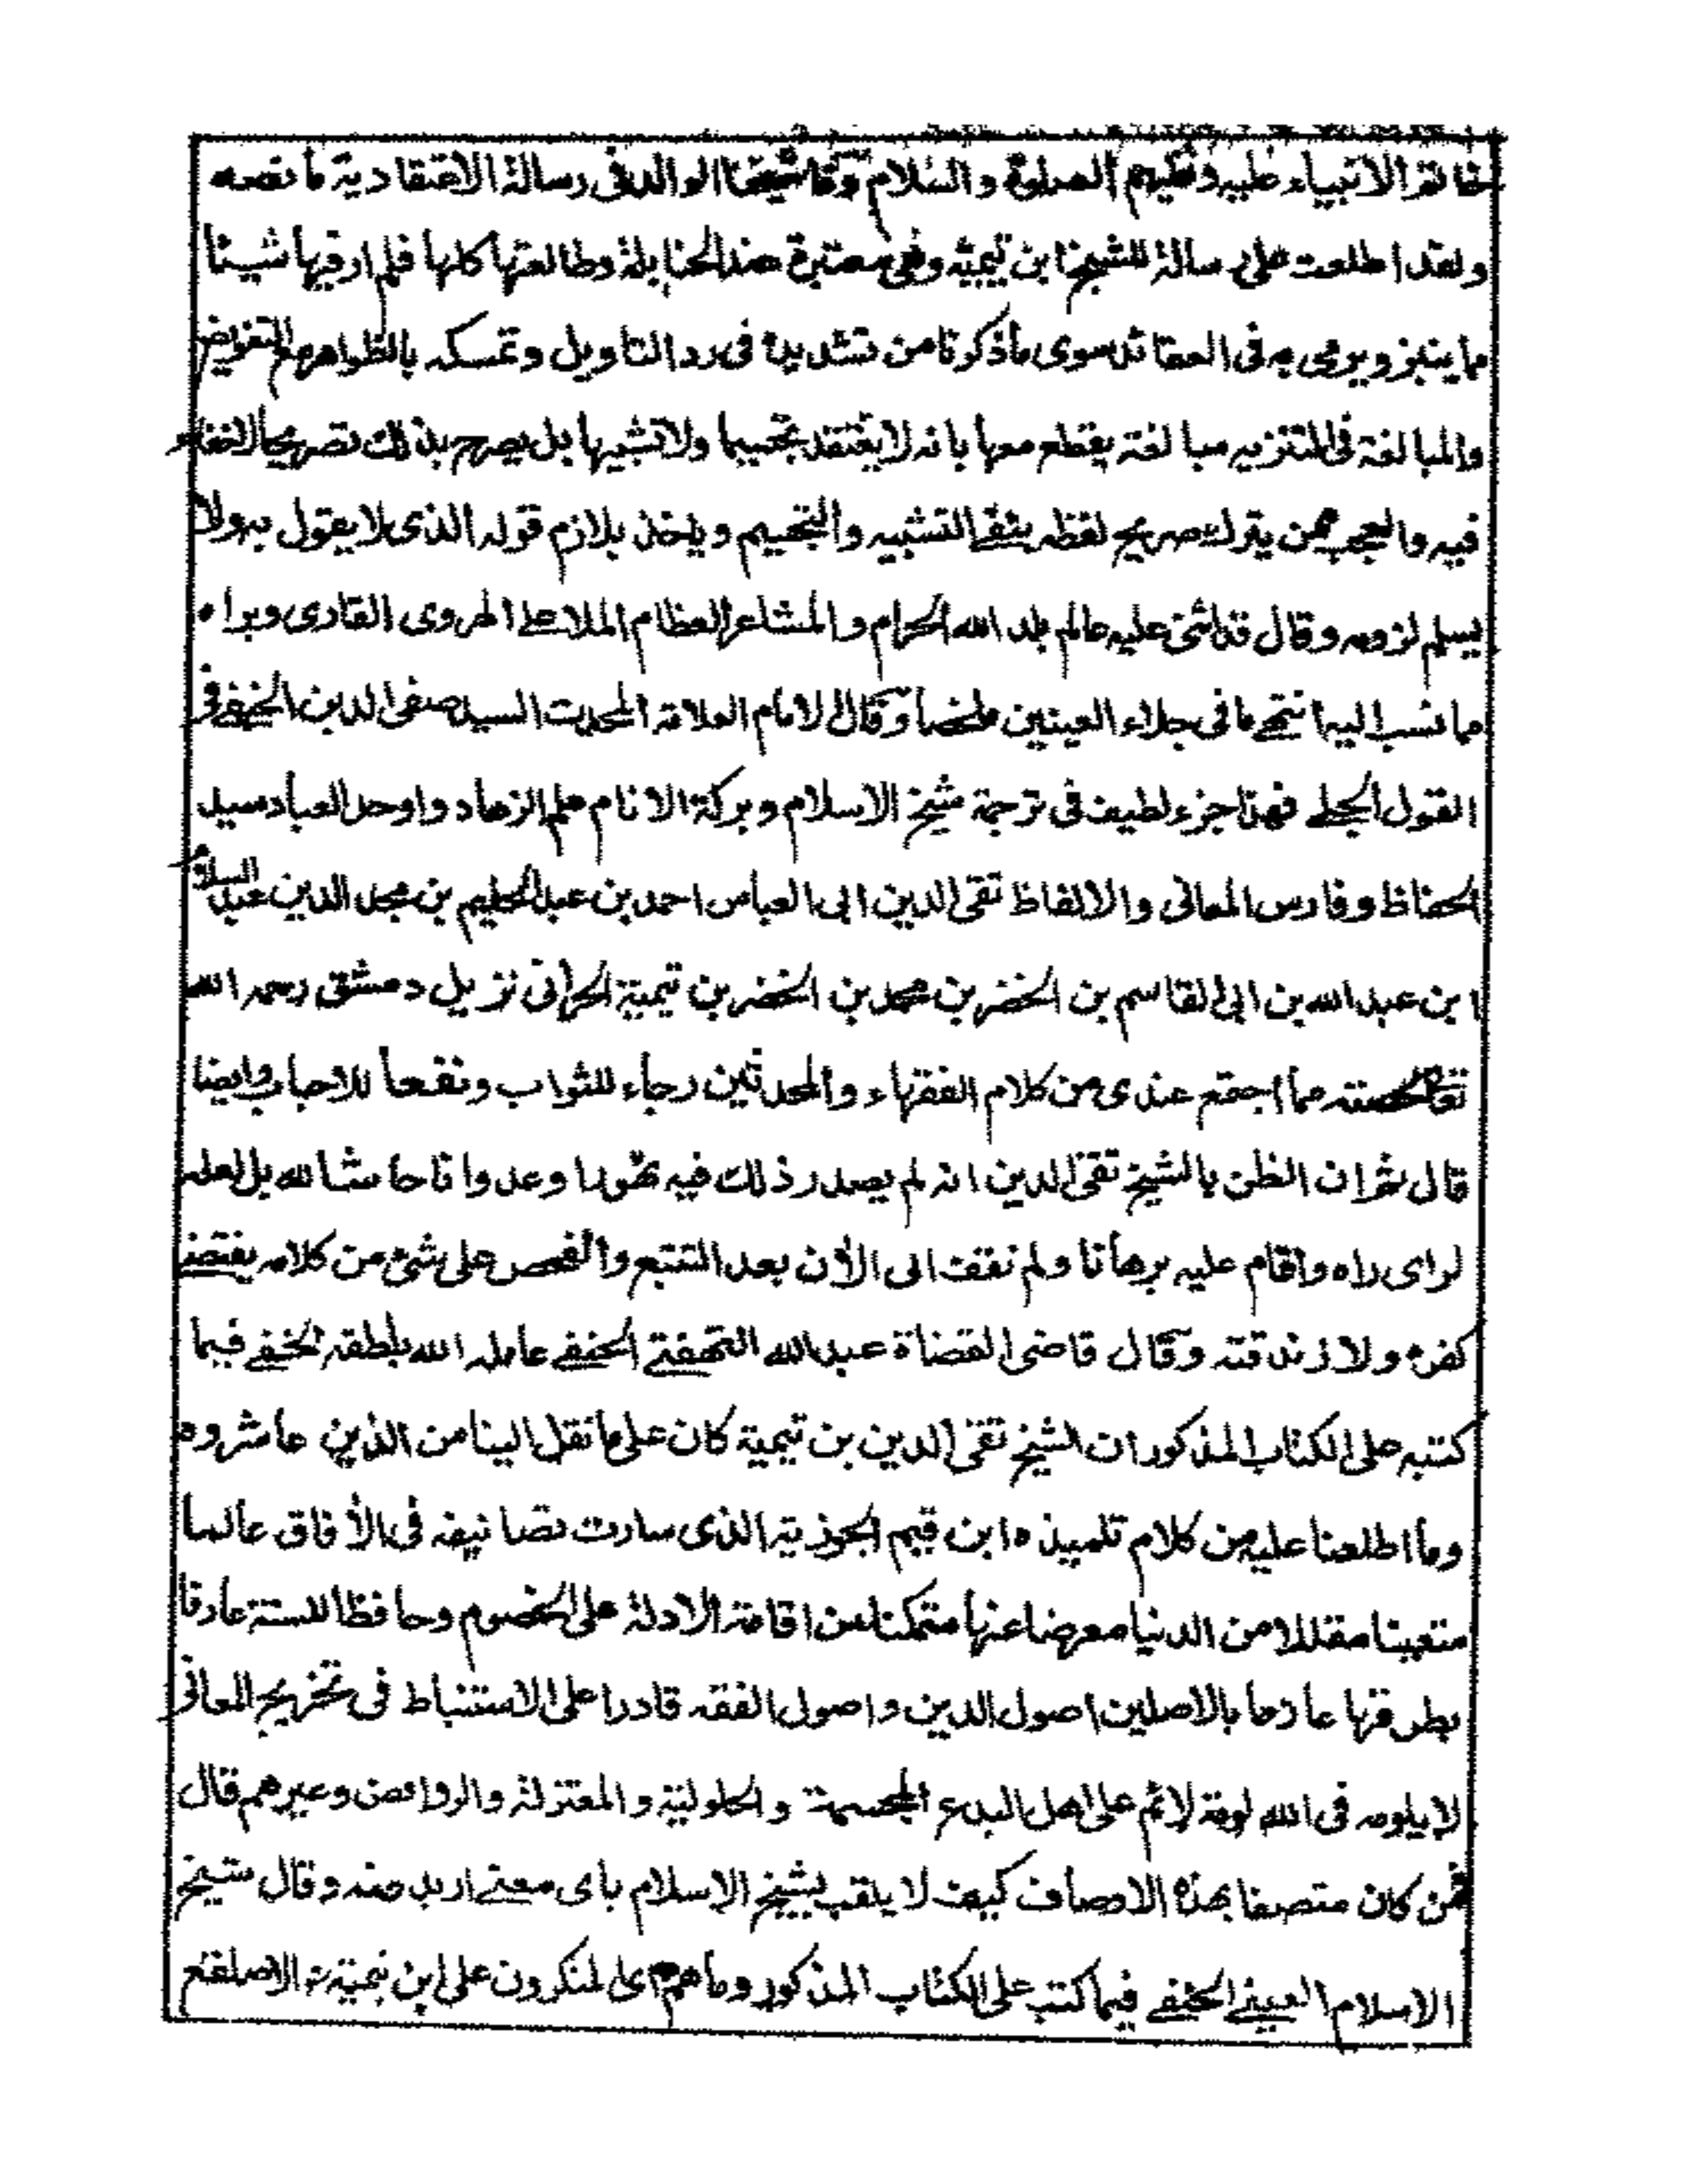 خاتم الانبياء عليه وعليهم الصلوة والسلام وقال شيخنا الوالد فى رسالة الاعتقادية ما نصه
ولقد اطلعت على رسالة للشيخ ابن تيمية وهى معتبرة عند الحنابلة وطالعتها كلها فلم ار فيها شيئا
مما ينبز ويرمى به فى العقائد سوى ما ذكرنا من تشديده فى رد التاويل وتمسكه بالظواهر مع التفويض
والمبالغة فى التنزيه مبالغة يقطع معها بانه لا يعتقد تجسيما ولا تشبيها بل يصرح بذلك تصريحا لا خفاء
فيه والعجب ممن يترك صريح لفظه بنفى التشبيه والتجسيم وياخذ بلازم قوله الذى لا يقول به ولا
يسلم لزومه وقال قد اثنى عليه عالم بلد الله الحرام والمشاعر العظام الملا على الهروى القارى وبراه
مما نسب اليه انتهى ما فى جلاء العينين ملخصا وقال الامام العلامة المحدث السيد صفى الدين الحنفى فى
القول الجلى فهذا جزء لطيف فى ترجمة شيخ الاسلام وبركة الانام علم الزهاد واوحد العباد سيد
الحفاظ وفارس المعانى والالفاظ تقى الدين ابى العباس احمد بن عبد الحليم بن مجد الدين عبد السلام
ابن عبد الله بن ابى القاسم بن الخضر بن محمد بن الخضر بن تيمية الحرانى نزيل دمشق رحمه الله
تعالى لخصته مما اجتمع عندى من كلام الفقهاء والمحدثين رجاء للثواب ونفعا للاحباب وايضا
قال ثم ان الظن بالشيخ تقى الدين انه لم يصدر ذلك فيه تهورا وعدوانا حاشا لله بل لعله
لراى راه واقام عليه برهانا ولم نقف الى الأن بعد التتبع والفحص على شئ من كلامه يقتضى
كفره ولا زندقته وقال قاضى القضاة عبد الله التفهنى الحنفى عامله الله بلطفه الخفى فيما
كتبه على الكتاب المذكور ان الشيخ تقى الدين بن تيمية كان على ما نقل الينا من الذين عاشروه
وما اطلعنا عليه من كلام تلميذه ابن قيم الجوزية الذى سارت تصانيفه فى الأفاق عالما
متعينا مقللا من الدنيا معرضا عنها متمكنا من اقامة الادلة على الخصوم وحافظا للسنة عارفا
بطرقها عارفا بالاصلين اصول الدين واصول الفقه قادرا على الاستنباط فى تخريج المعانى
لا يلومه فى الله لومة لائم على اهل البدع المجسمة والحلولية والمعتزلة والروافض وغيرهم قال
فمن كان متصفا بهذه الاوصاف كيف لا يلقب بشيخ الاسلام باى معنى اريد منه وقال شيخ
الاسلام العينى الحنفى فيما كتب على الكتاب المذكور وما هم اى المنكرون على ابن تيمية الا صلقع